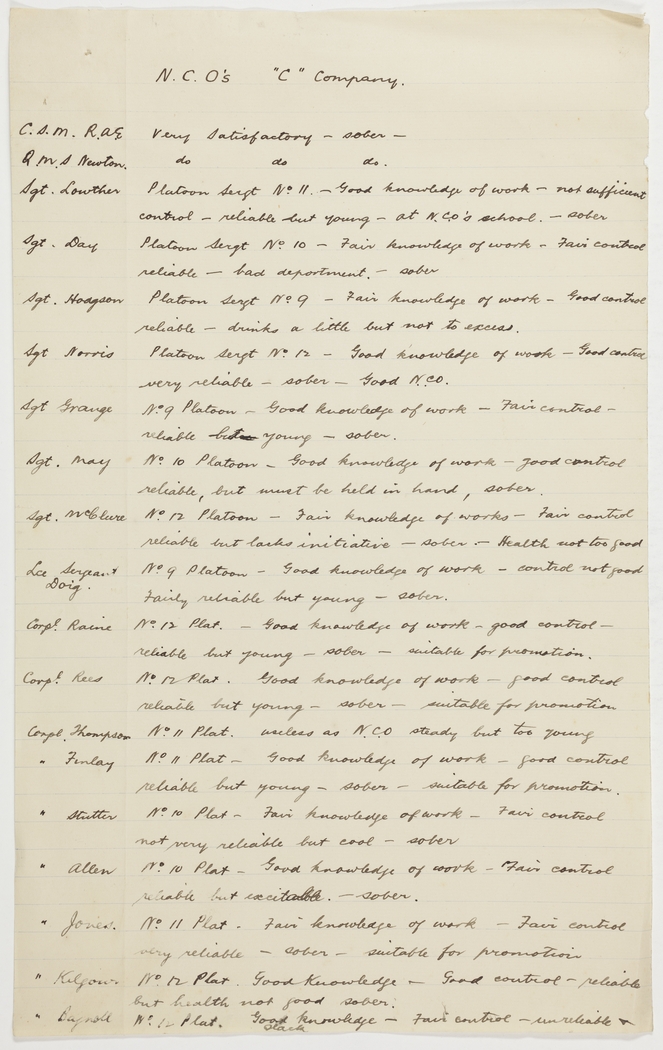 N.C.O's "C" Company.
C.S.M. RAE Very Satisfactory – sober –
Q.M.S Newton. do do do.
Sgt. Lowther Platoon Sergt No 11. – Good knowledge of work – not sufficient
control – reliable but young – at N.C.O's school. – sober
Sgt. Day Platoon Sergt No 10 – Fair knowledge of work – Fair control
reliable – bad deportment. – sober
Sgt. Hodgson Platoon Sergt No 9 – Fair knowledge of work – Good control
reliable – drinks a little but not to excess.
Sgt Norris Platoon Sergt No 12 – Good knowledge of work – Good control
very reliable – sober – Good N.C.O.
Sgt Grange No 9 Platoon – Good knowledge of work – Fair control –
reliable but young – sober.
Sgt. May No 10 Platoon – Good knowledge of work – good control
reliable, but must be held in hand, sober.
Sgt. McClure No 12 Platoon – Fair knowledge of works – Fair control
reliable but lacks initiative – sober – Health not too good
Lce Sergeant No 9 Platoon – Good knowledge of work – control not good
Doig. Fairly reliable but young – sober.
Corpl. Raine No 12 Plat. – Good knowledge of work – good control –
reliable but young – sober – suitable for promotion.
Corpl. Rees No 12 Plat. Good knowledge of work – good control
reliable but young – sober – suitable for promotion
Corpl. Thompson No 11 Plat. useless as N.C.O steady but too young
" Finlay No 11 Plat – Good knowledge of work – good control
reliable but young – sober – suitable for promotion.
" Stutter No 10 Plat – Fair knowledge of work – Fair control
not very reliable but cool – sober
" Allen No 10 Plat – Good knowledge of work – Fair control
reliable but excitable. – sober.
" Jones. No 11 Plat. Fair knowledge of work – Fair control
very reliable – sober – suitable for promotion
" Kilgour. No 12 Plat. Good Knowledge – Good control – reliable
but health not good sober.
" No 12 Plat. Good knowledge – Fair control – unreliable +
slack